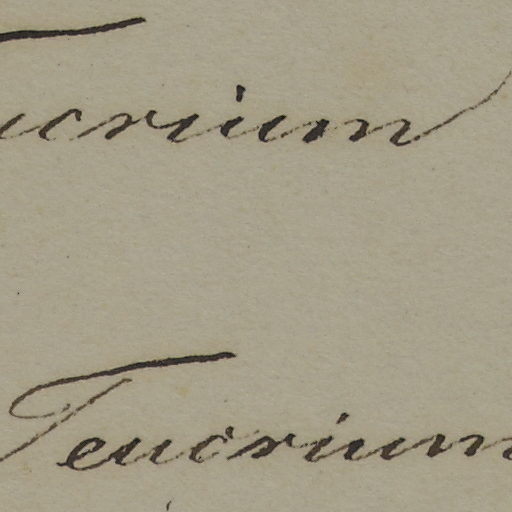 ucrium
Teucrium